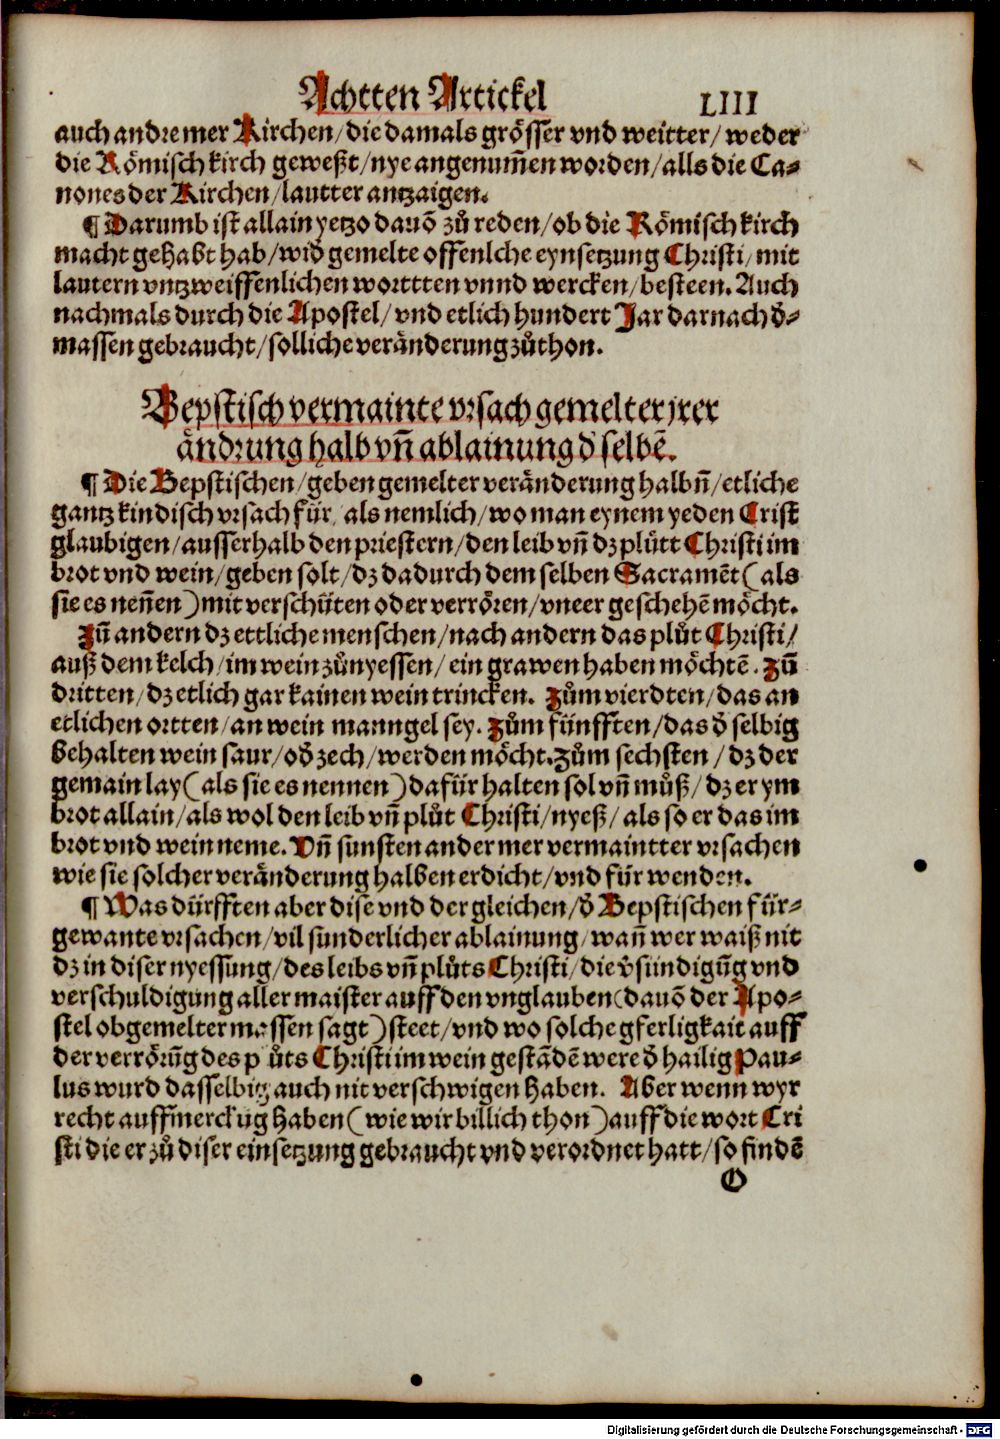 Achtten Artickel LIII
auch andre mer Kirchen/die damals grösser vnd weitter/weder
die Römisch kirch geweßt/nye angenum̃en worden/alls die Ca-
nones der Kirchen/lautter antzaigen.
¶ Darumb ist allain yetzo dauõ zů reden/ob die Römisch kirch
macht gehabt hab/wiđ gemelte offenlche eynsetzung Christi/mit
lautern vntzweiffenlichen worttten vnnd wercken/besteen. Auch
nachmals durch die Apostel/vnd etlich hundert Jar darnach đ-
massen gebraucht/solliche veränderung zůthon.
Bepstisch vermainte vrsach gemelter jrer
ändrung halb vñ ablainung đ selbẽ.
¶ Die Bepstischen/geben gemelter veränderung halbñ/etliche
gantz kindisch vrsach für/als nemlich/wo man eynem yeden Crist
glaubigen/ausserhalb den priestern/den leib vñ dz plůtt Christi im
brot vnd wein/geben solt/dz dadurch dem selben Sacramẽt (als
sie es neñen) mit verschüten oder verrören/vneer geschehẽ möcht.
Zũ andern dz ettliche menschen/nach andern das plůt Christi/
auß dem kelch/im wein zůnyessen/ein grawen haben möchtẽ. Zũ
dritten/dz etlich gar kainen wein trincken. Zům vierdten/das an
etlichen ortten/an wein manngel sey. Zům fünfften/das đ selbig
behalten wein saur/ođ zech/werden möcht. Zům sechsten/dz der
gemain lay (als sie es nennen) dafür halten sol vñ můß/dz er ym
brot allain/als wol den leib vñ plůt Christi/nyeß/als so er das im
brot vnd wein neme. Vñ sunsten ander mer vermaintter vrsachen
wie sie solcher veränderung halben erdicht/vnd für wenden.
¶ Was dürfften aber dise vnd der gleichen/đ Bepstischen für-
gewante vrsachen/vil sunderlicher ablainung/wañ wer waiß nit
dz in diser nyessung/des leibs vñ plůts Christi/die v̾sündigũg vnd
verschuldigung aller maister auff den vnglauben (dauõ der Apo-
stel obgemelter massen sagt) steet/vnd wo solche gferligkait auff
der verrörũg des p ůts Christi im wein gestãdẽ were đ hailig Pau-
lus wurd dasselbig auch nit verschwigen haben. Aber wenn wyr
recht auffmerckũg haben (wie wir billich thon) auff die wort Cri
sti die er zů diser einsetzung gebraucht vnd verordnet hatt/so findẽ
O
Digitalisierung gefördert durch die Deutsche Forschungsgemeinschaft - DFG